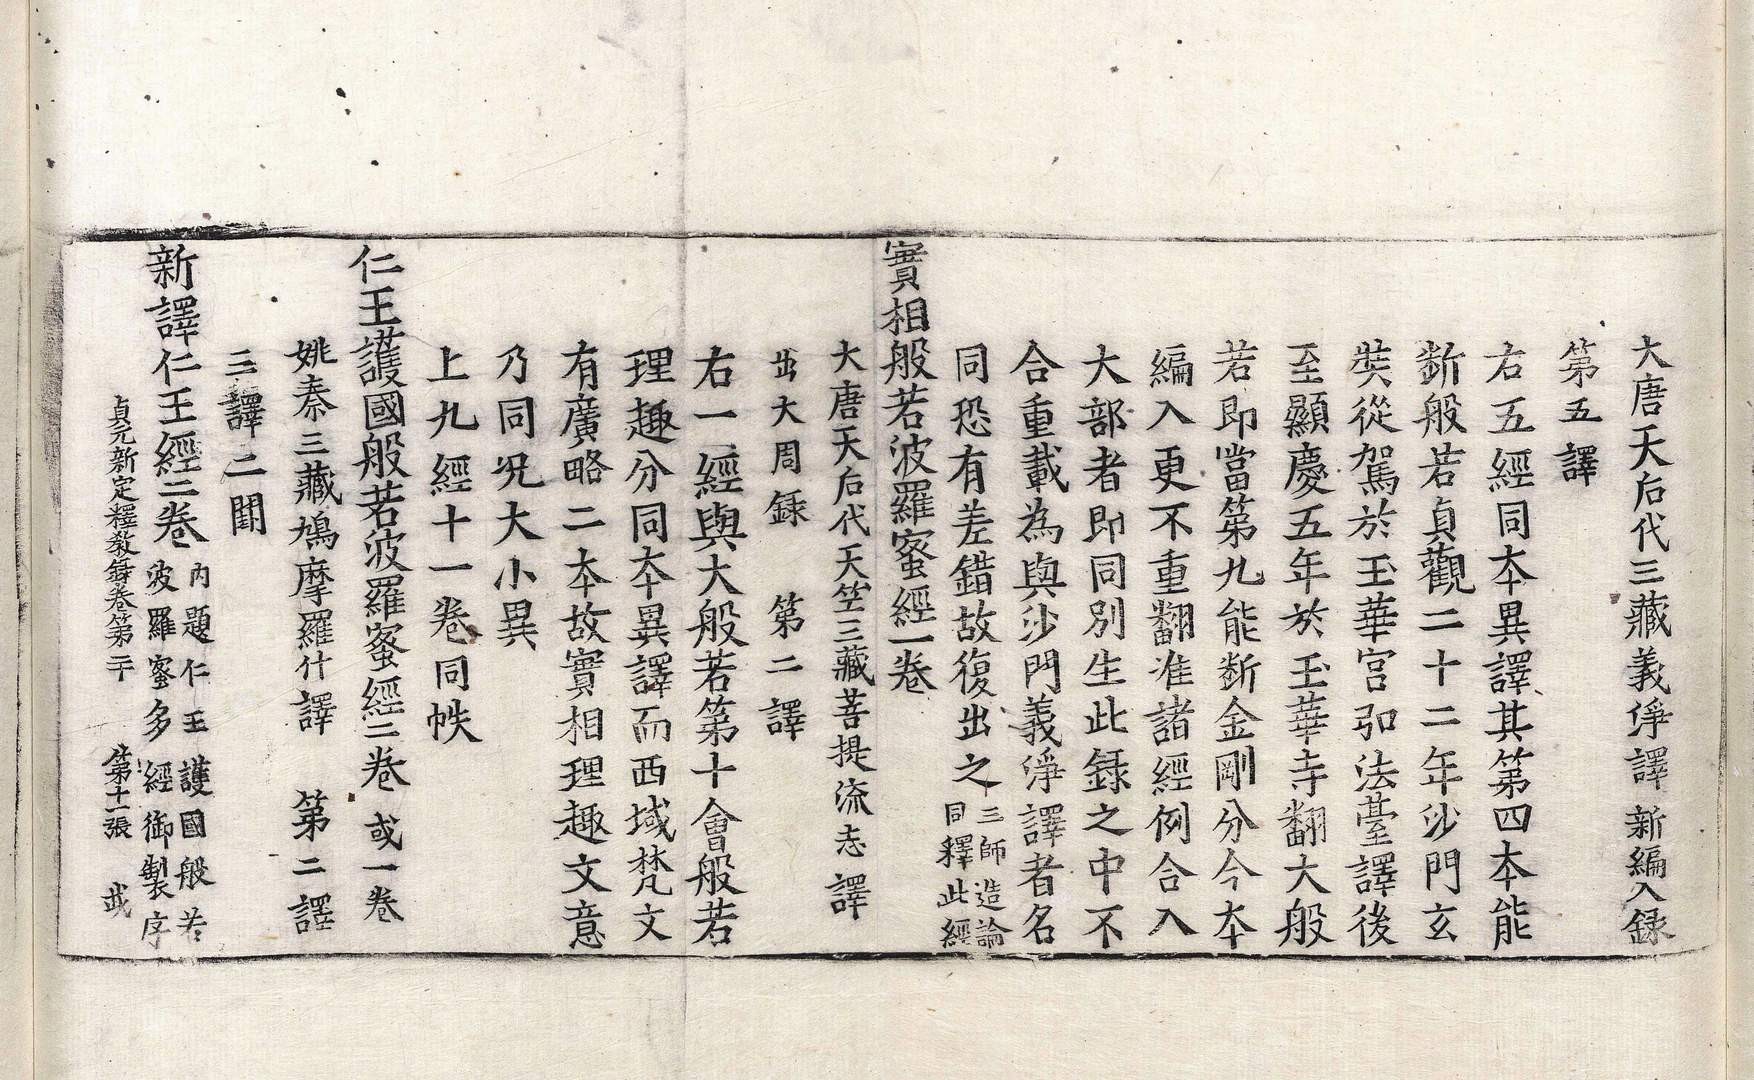 大唐天后代三藏義淨譯 新編入録
第五譯
右五經同本異譯其第四本能
斷般若貞觀二十二年沙門玄
奘從駕於玉華宮弘法臺譯後
至顯慶五年於玉華寺翻大般
若即當第九能斷金剛分今本
編入更不重翻准諸經例合入
大部者即同別生此録之中不
合重載為與沙門義淨譯者名
同恐有差錯故復出之 三師造論
同釋此經
實相般若波羅蜜經一卷
大唐天后代天竺三藏菩提流志譯
出大周録 第二譯
右一經與大般若第十會般若
理趣分同本異譯而西域梵文
有廣略二本故實相理趣文意
乃同況大小異
上九經十一卷同帙
仁王護國般若波羅蜜經二卷 或一卷
姚秦三藏鳩摩羅什譯 第二譯
三譯二闕
新譯仁王經二卷 内題仁王護國般若
波羅蜜多經御製序
貞元新定釋教録卷第二十 第十一張 武